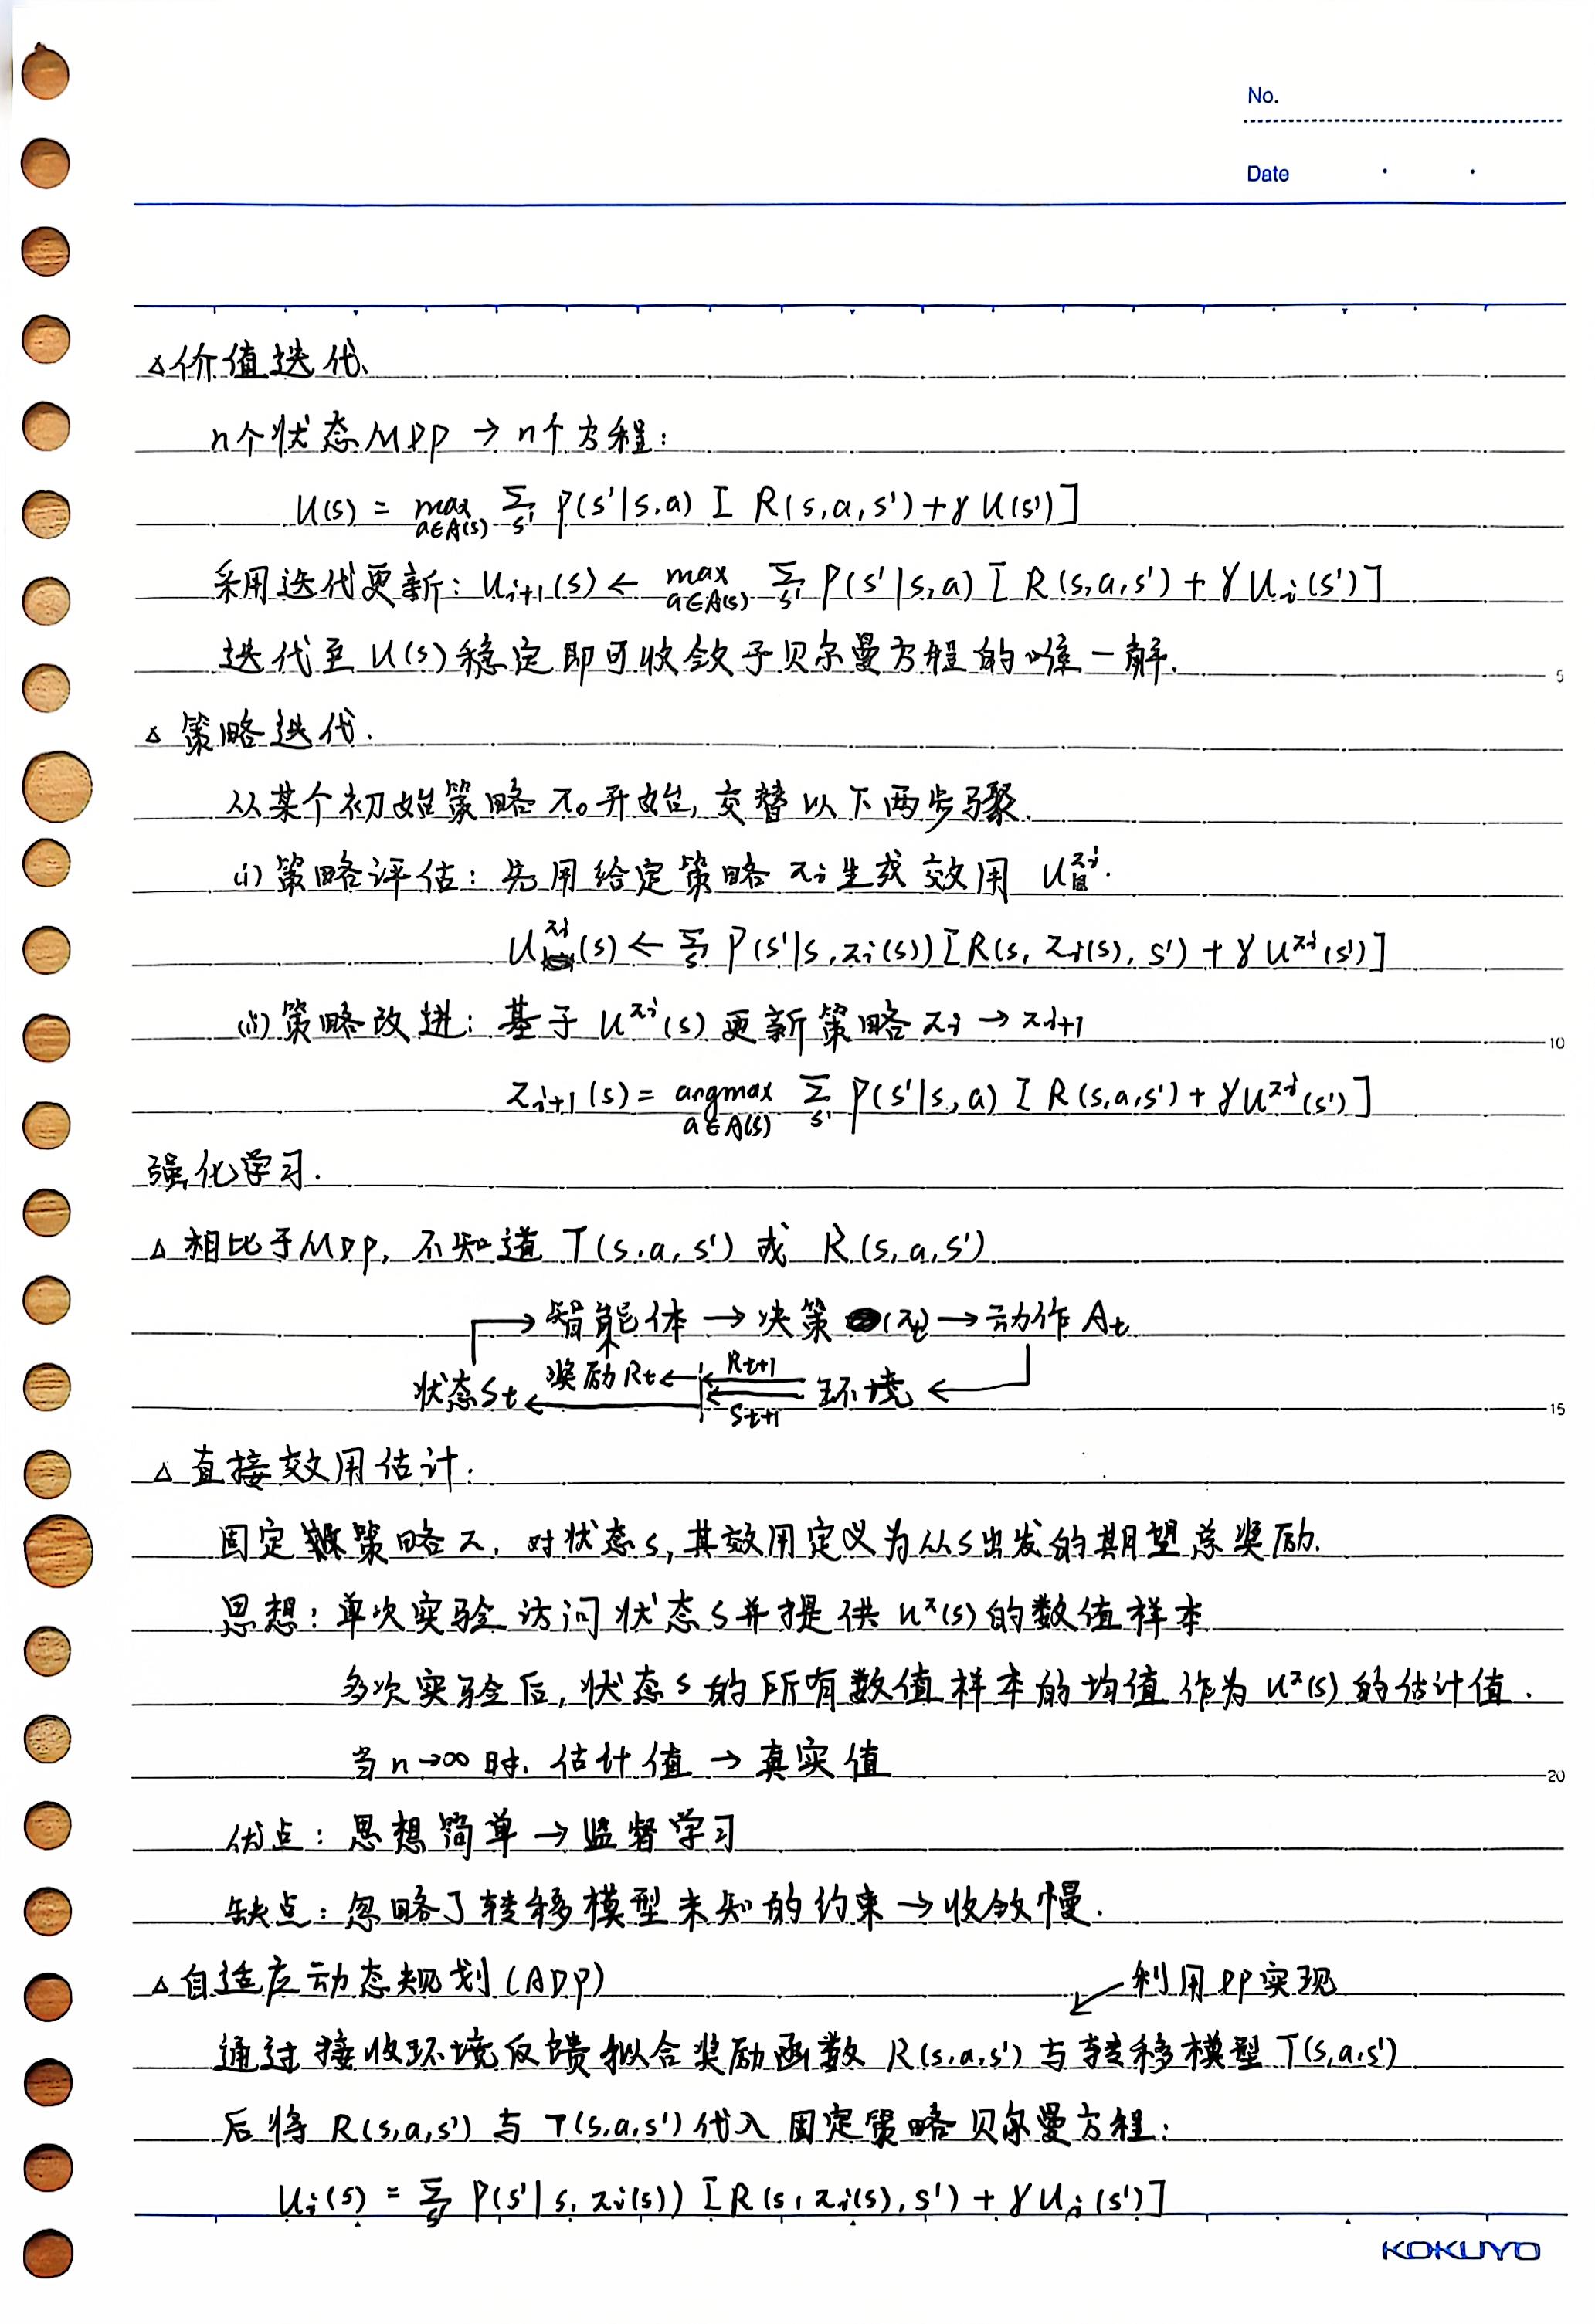 No.
Date
△价值迭代、
n个状态MDP → n个方程：
U(s) = max_{a∈A(s)} Σ_{s'} P(s'|s,a) [ R(s,a,s') + γ U(s') ]
采用迭代更新：U_{i+1}(s) ← max_{a∈A(s)} Σ_{s'} P(s'|s,a) [ R(s,a,s') + γ U_i(s') ]
迭代至 U(s) 稳定即可收敛于贝尔曼方程的唯一解.
5
△ 策略迭代.
从某个初始策略 π₀ 开始, 交替以下两步骤.
(i) 策略评估：先用给定策略 π_i 生成效用 U^{π_i}.
U^{π_i}(s) ← Σ_{s'} P(s'|s,π_i(s)) [ R(s,π_i(s),s') + γ U^{π_i}(s') ]
(ii) 策略改进：基于 U^{π_i}(s) 更新策略 π_i → π_{i+1}
10
π_{i+1}(s) = argmax_{a∈A(s)} Σ_{s'} P(s'|s,a) [ R(s,a,s') + γ U^{π_i}(s') ]
强化学习.
△ 相比于MDP, 不知道 T(s,a,s') 或 R(s,a,s')
智能体 → 决策 (π_t) → 动作 A_t
状态S_t ← 奖励R_t ← R_{t+1} S_{t+1} 环境 ←
15
△ 直接效用估计：
固定策略 π, 对状态s, 其效用定义为从s出发的期望总奖励.
思想：单次实验访问状态s并提供 U^π(s) 的数值样本
多次实验后, 状态s的所有数值样本的均值作为 U^π(s) 的估计值.
当 n→∞ 时, 估计值 → 真实值
20
优点：思想简单 → 监督学习
缺点：忽略了转移模型未知的约束 → 收敛慢.
△ 自适应动态规划(ADP)
利用DP实现
通过接收环境反馈拟合奖励函数 R(s,a,s') 与转移模型 T(s,a,s')
后将 R(s,a,s') 与 T(s,a,s') 代入固定策略贝尔曼方程：
U_i(s) = Σ_{s'} P(s'|s,π_i(s)) [ R(s,π_i(s),s') + γ U_i(s') ]
KOKUYO